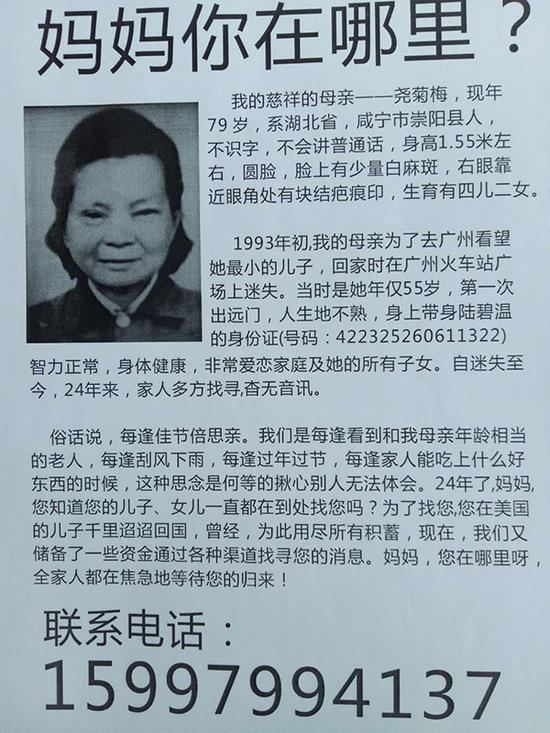 妈妈你在哪里？
我的慈祥的母亲——尧菊梅，现年
79岁，系湖北省，咸宁市崇阳县人，
不识字，不会讲普通话，身高1.55米左
右，圆脸，脸上有少量白麻斑，右眼靠
近眼角处有块结疤痕印，生育有四儿二女。
1993年初,我的母亲为了去广州看望
她最小的儿子，回家时在广州火车站广
场上迷失。当时是她年仅55岁，第一次
出远门，人生地不熟，身上带身陆碧温
的身份证(号码：422325260611322)
智力正常，身体健康，非常爱恋家庭及她的所有子女。自迷失至
今，24年来，家人多方找寻,杳无音讯。
俗话说，每逢佳节倍思亲。我们是每逢看到和我母亲年龄相当
的老人，每逢刮风下雨，每逢过年过节，每逢家人能吃上什么好
东西的时候，这种思念是何等的揪心别人无法体会。24年了,妈妈,
您知道您的儿子、女儿一直都在到处找您吗？为了找您,您在美国
的儿子千里迢迢回国，曾经，为此用尽所有积蓄，现在，我们又
储备了一些资金通过各种渠道找寻您的消息。妈妈，您在哪里呀，
全家人都在焦急地等待您的归来！
联系电话：
15997994137